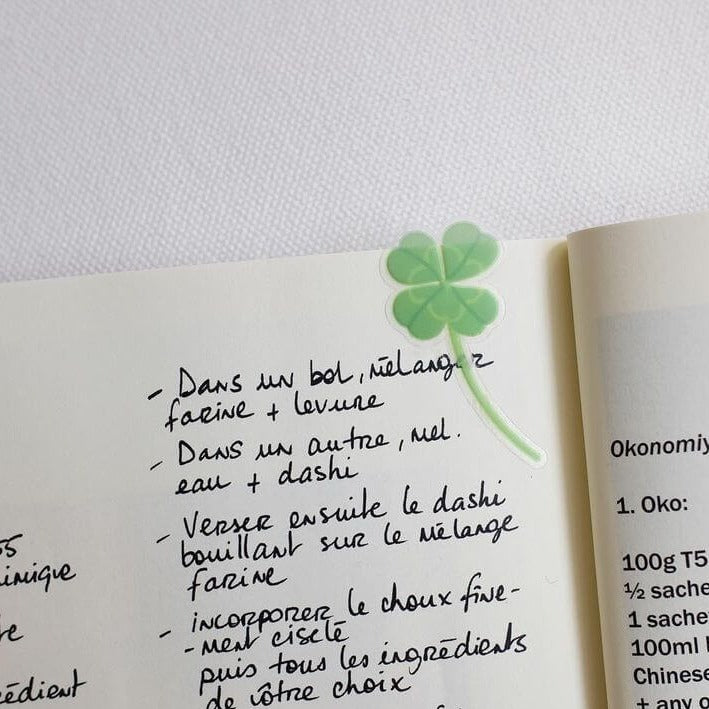 - Dans un bol, mélanger
farine + levure
- Dans un autre, mel.
eau + dashi
- Verser ensuite le dashi
bouillant sur le mélange
farine
- incorporer le choux fine-
-ment ciselé
puis tous les ingrédients
de vôtre choix
Okonomiy
1. Oko:
100g T5
½ sache
1 sache
100ml
Chinese
+ any o